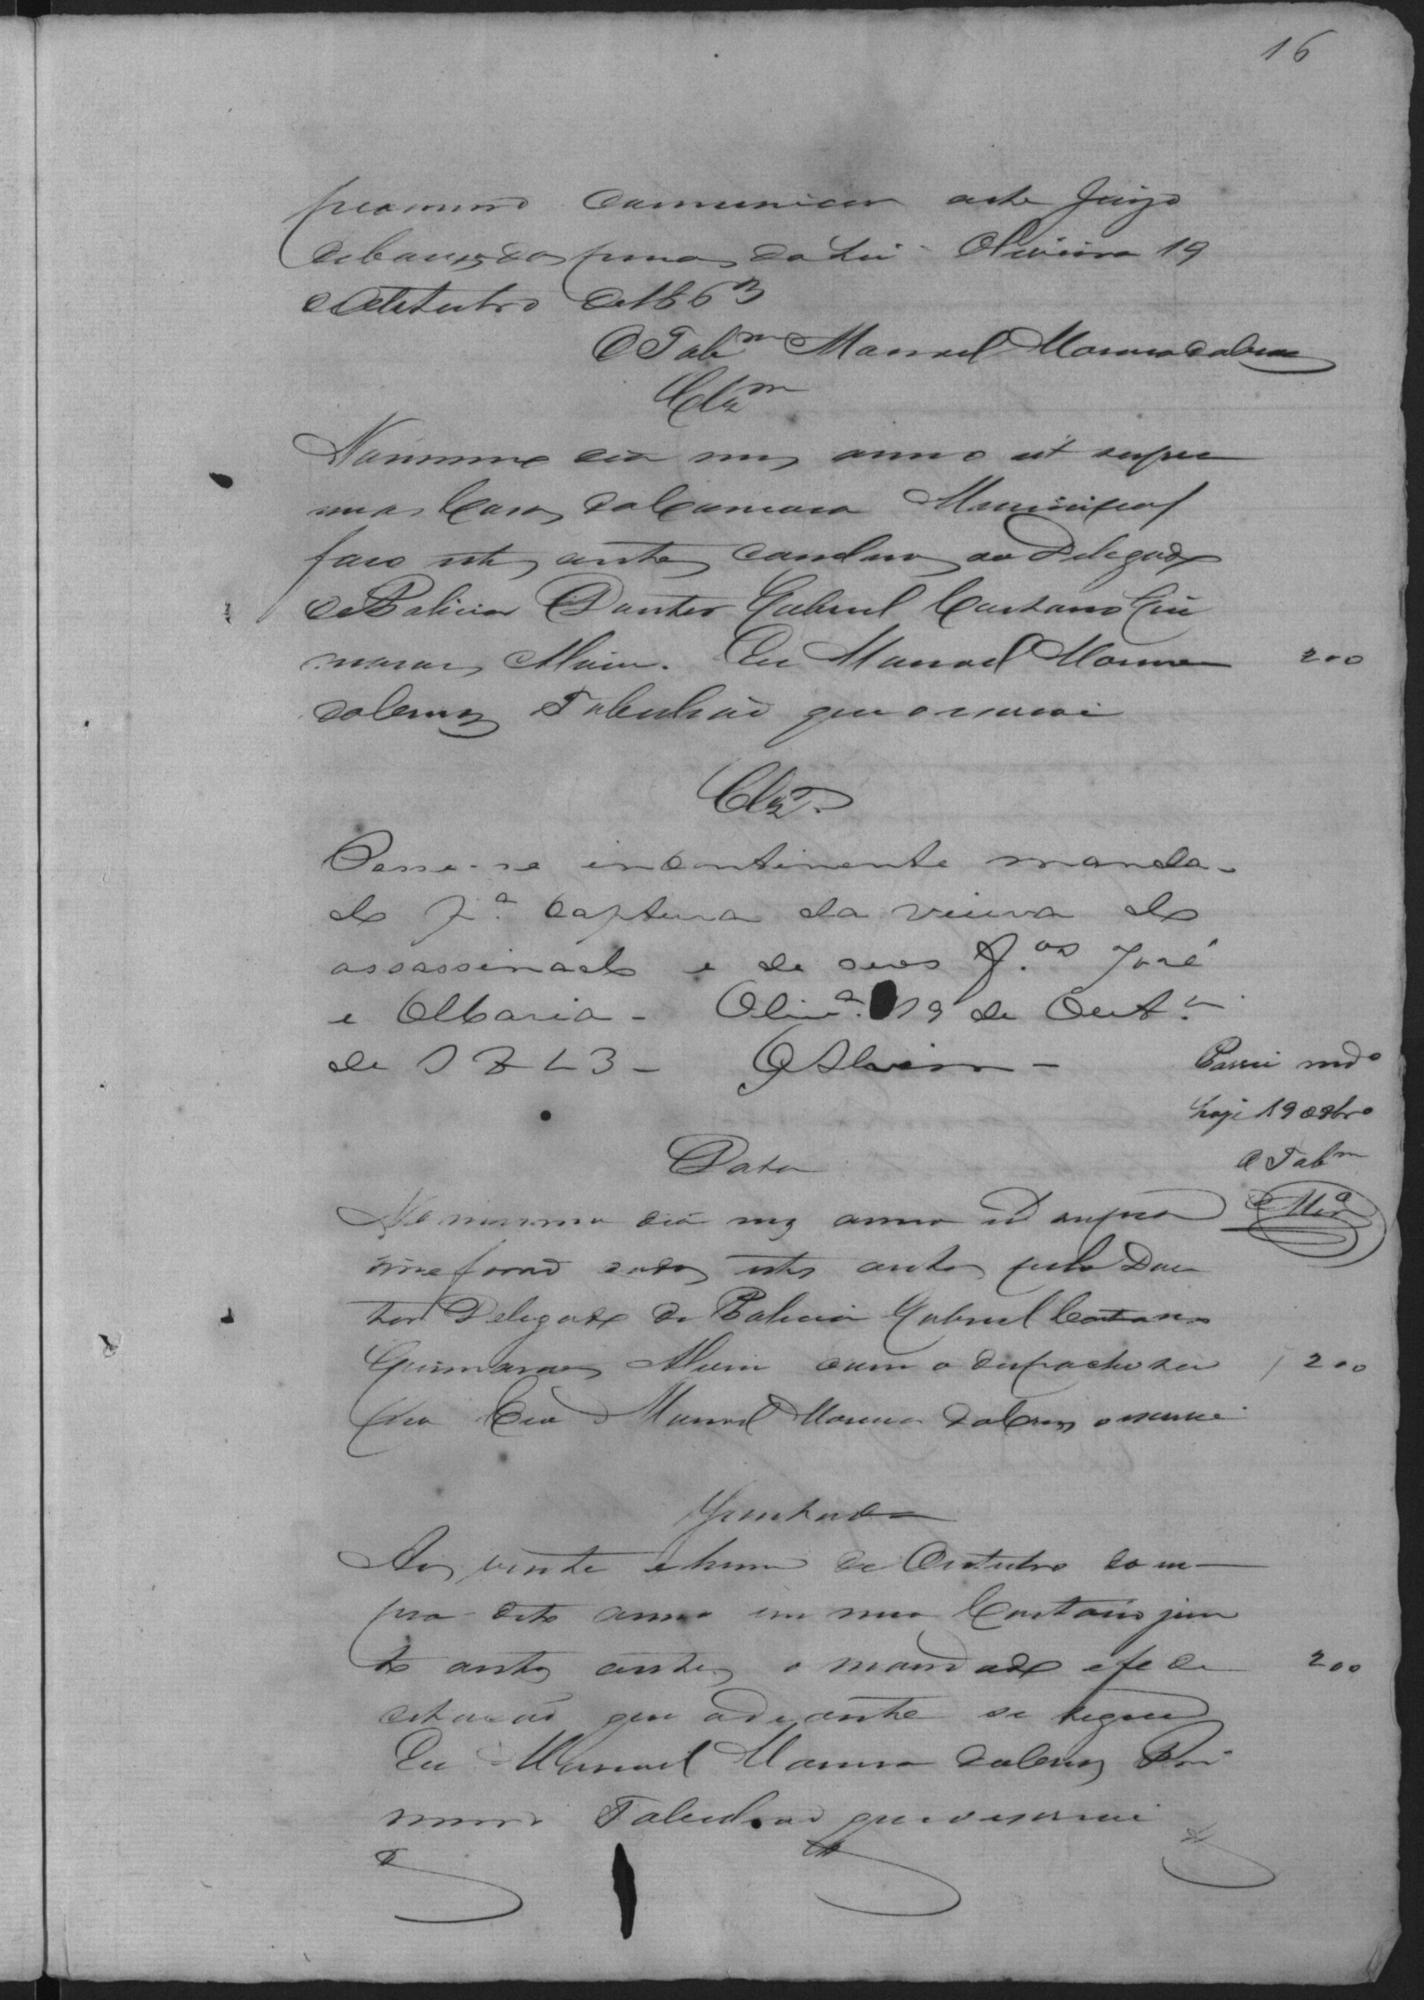 16
comunicar este Juizo
debaixo das penas da Lei Oliveira 19
e Outubro de 1863
O Tabam Manoel Moreira da Cruz
Clzm
No mesmo dia mez anno ut supra
nas Casas da Camara Municipal
faco estes autos concluzos ao Delegado
de Policia Doutor Gabriel Caetano Gui
maraes Alvim. Eu Manoel Moreira 200
da Cruz Tabeliaõ que o escrevi
Clz.
Passe-se incontinente manda-
do pa captura da viuva do
assassinado e de seus f.os José
e Maria - Olivra. 19 de Outro.
de 1863 - GAlvim -
Passei mdo
hoje 19 outbro
O Tabm
Mra
Data
No mesmo dia mez anno ut supra
me foraõ dados estes autos pelo Dou
tor Delegado de Policia Gabriel Caetano
Guimaraes Alvim com o despacho su 200
pra Eu Manoel Moreira da Cruz o escrevi
Juntada
Aos vinte e hum de Outubro do su-
pra dito anno em meo Cartorio jun
to autos o mandado e fe de 200
citacaõ que adeante se segue
Eu Manoel Moreira da Cruz Pri
meiro Tabeliaõ que o escrevi